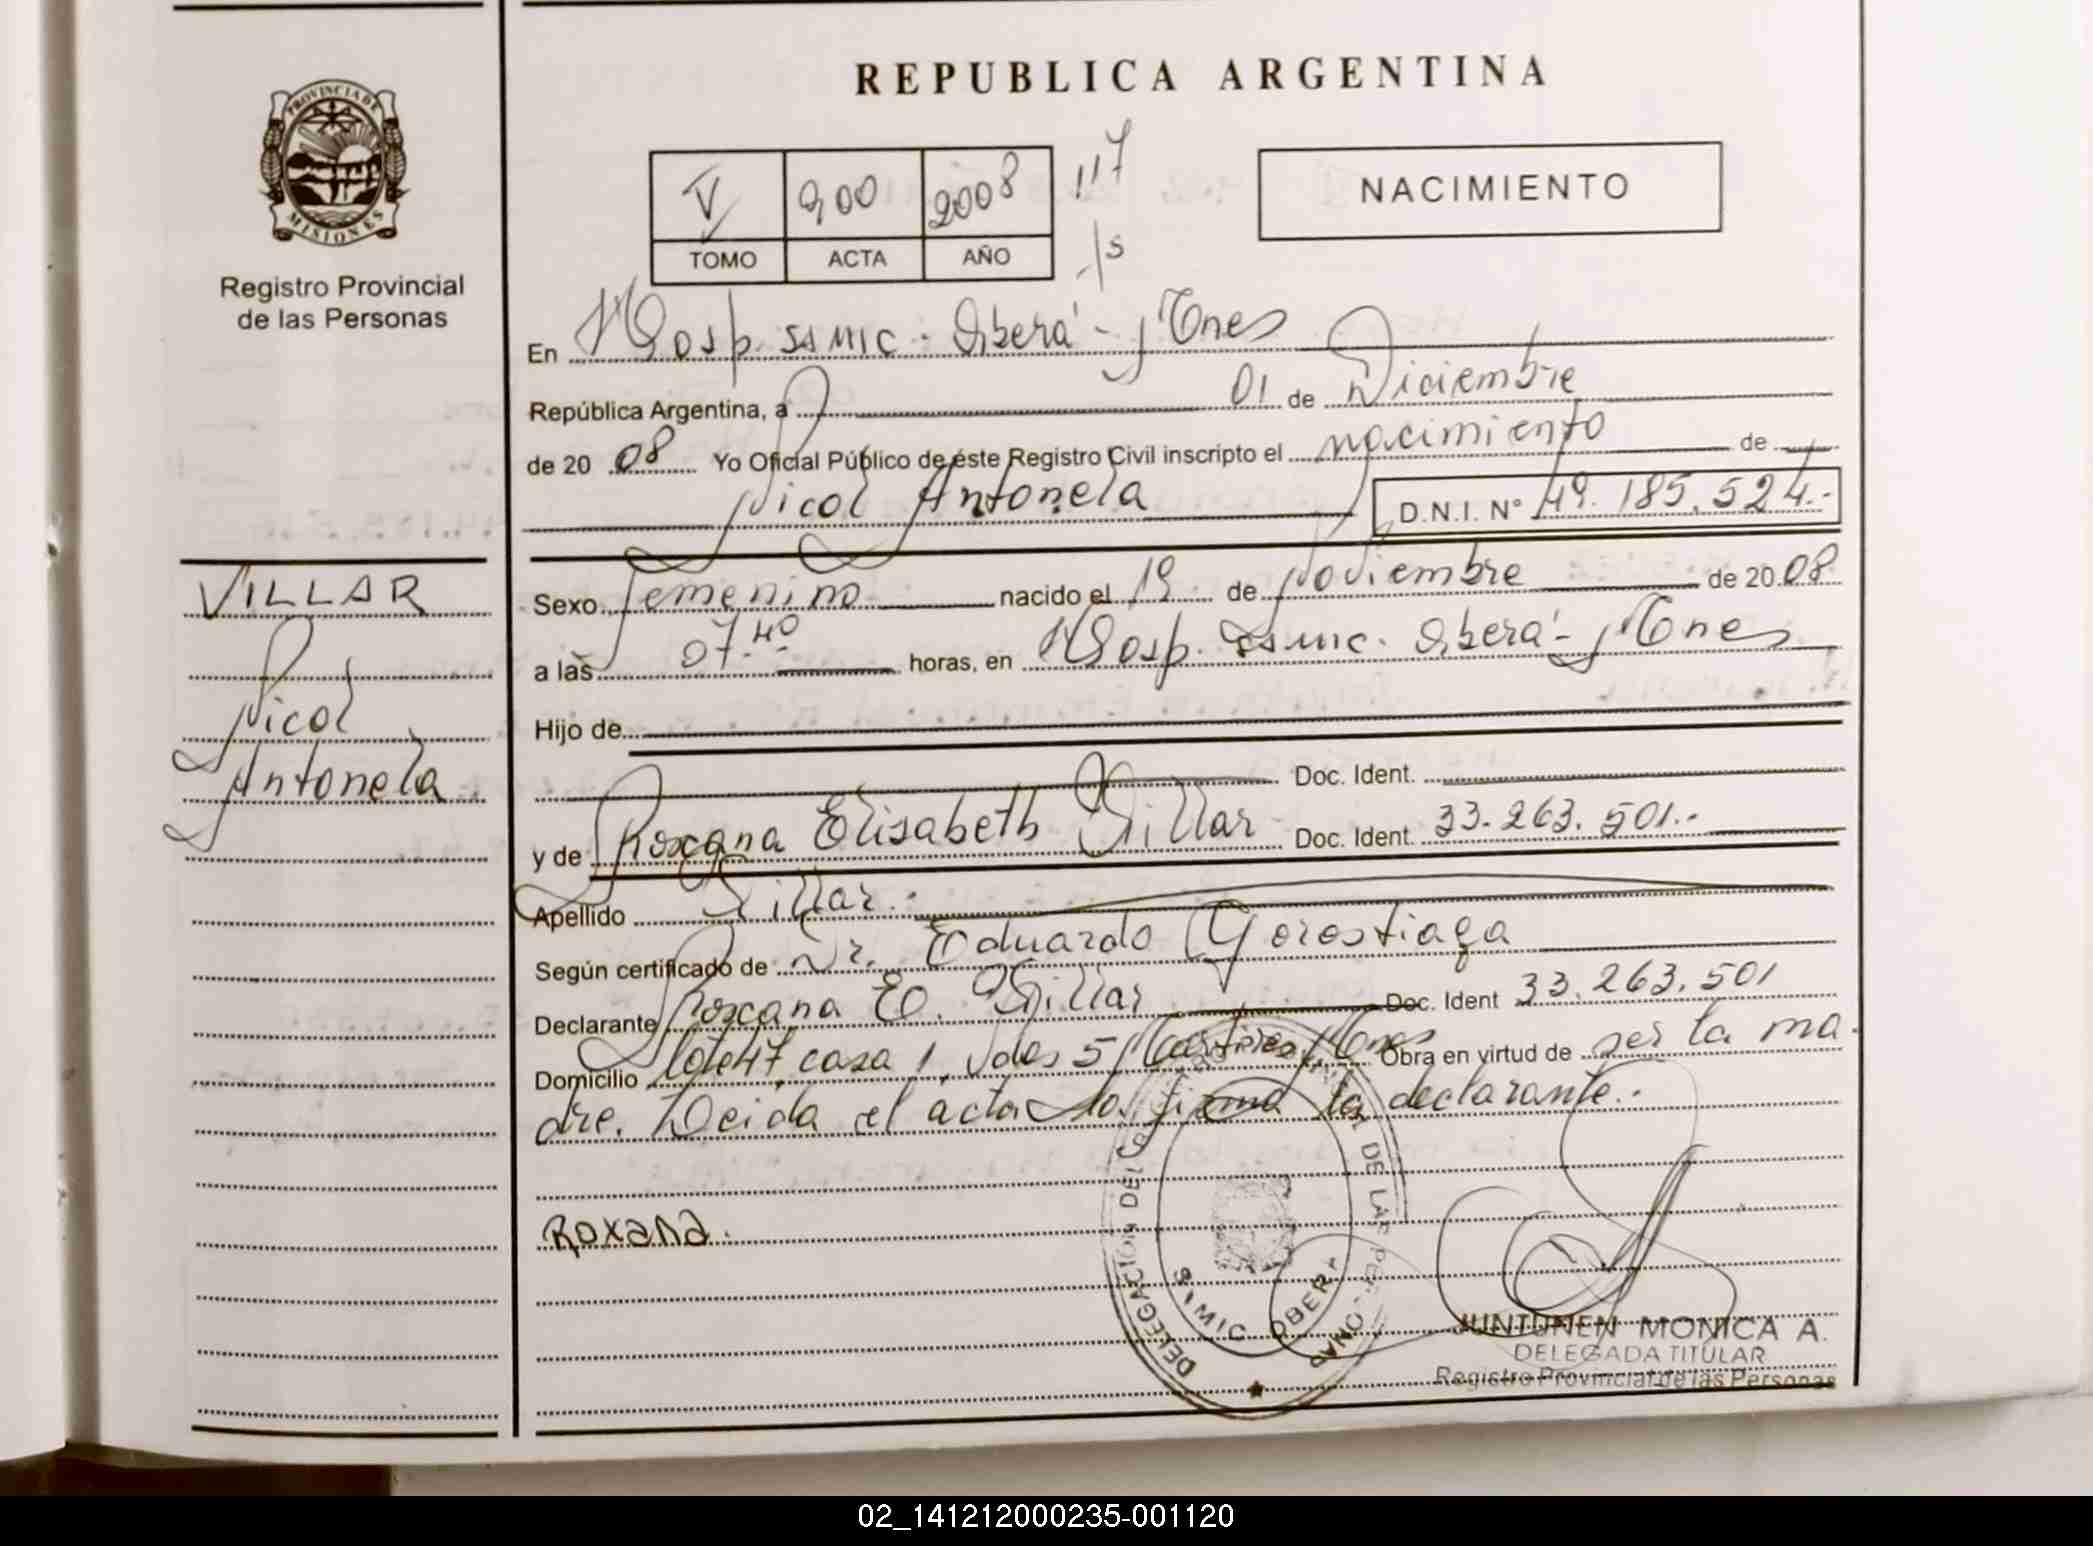 REPUBLICA ARGENTINA
PROVINCIA DE
MISIONES
Registro Provincial
de las Personas
V 900 2008 117
TOMO ACTA AÑO
NACIMIENTO
En Hosp. SSMIC. Oberá - Mnes
República Argentina, a 01 de Diciembre
de 20 08 Yo Oficial Público de éste Registro Civil inscripto el nacimiento de
Nicol Antonela D.N.I. N° 49.185.524.-
VILLAR
Nicol
Antonela
Sexo Femenino nacido el 19 de Noviembre de 20 08
a las 07.40 horas, en Hosp. SSMIC. Oberá - Mnes
Hijo de
Doc. Ident.
y de Roxana Elisabeth Villar Doc. Ident. 33.263.501.-
Apellido Villar.
Según certificado de Dr. Eduardo Gorostiaga
Declarante Roxana E. Villar Doc. Ident 33.263.501
Domicilio Lote 47, casa 1, Mártires Mnes Obra en virtud de ser la ma
dre. Leida el acta la firma la declarante.-
Roxana.
DELEGACION DEL DE LAS PERSONAS
SSMIC OBERA
JUNTUNEN MONICA A.
DELEGADA TITULAR
Registro Provincial de las Personas
02_141212000235-001120